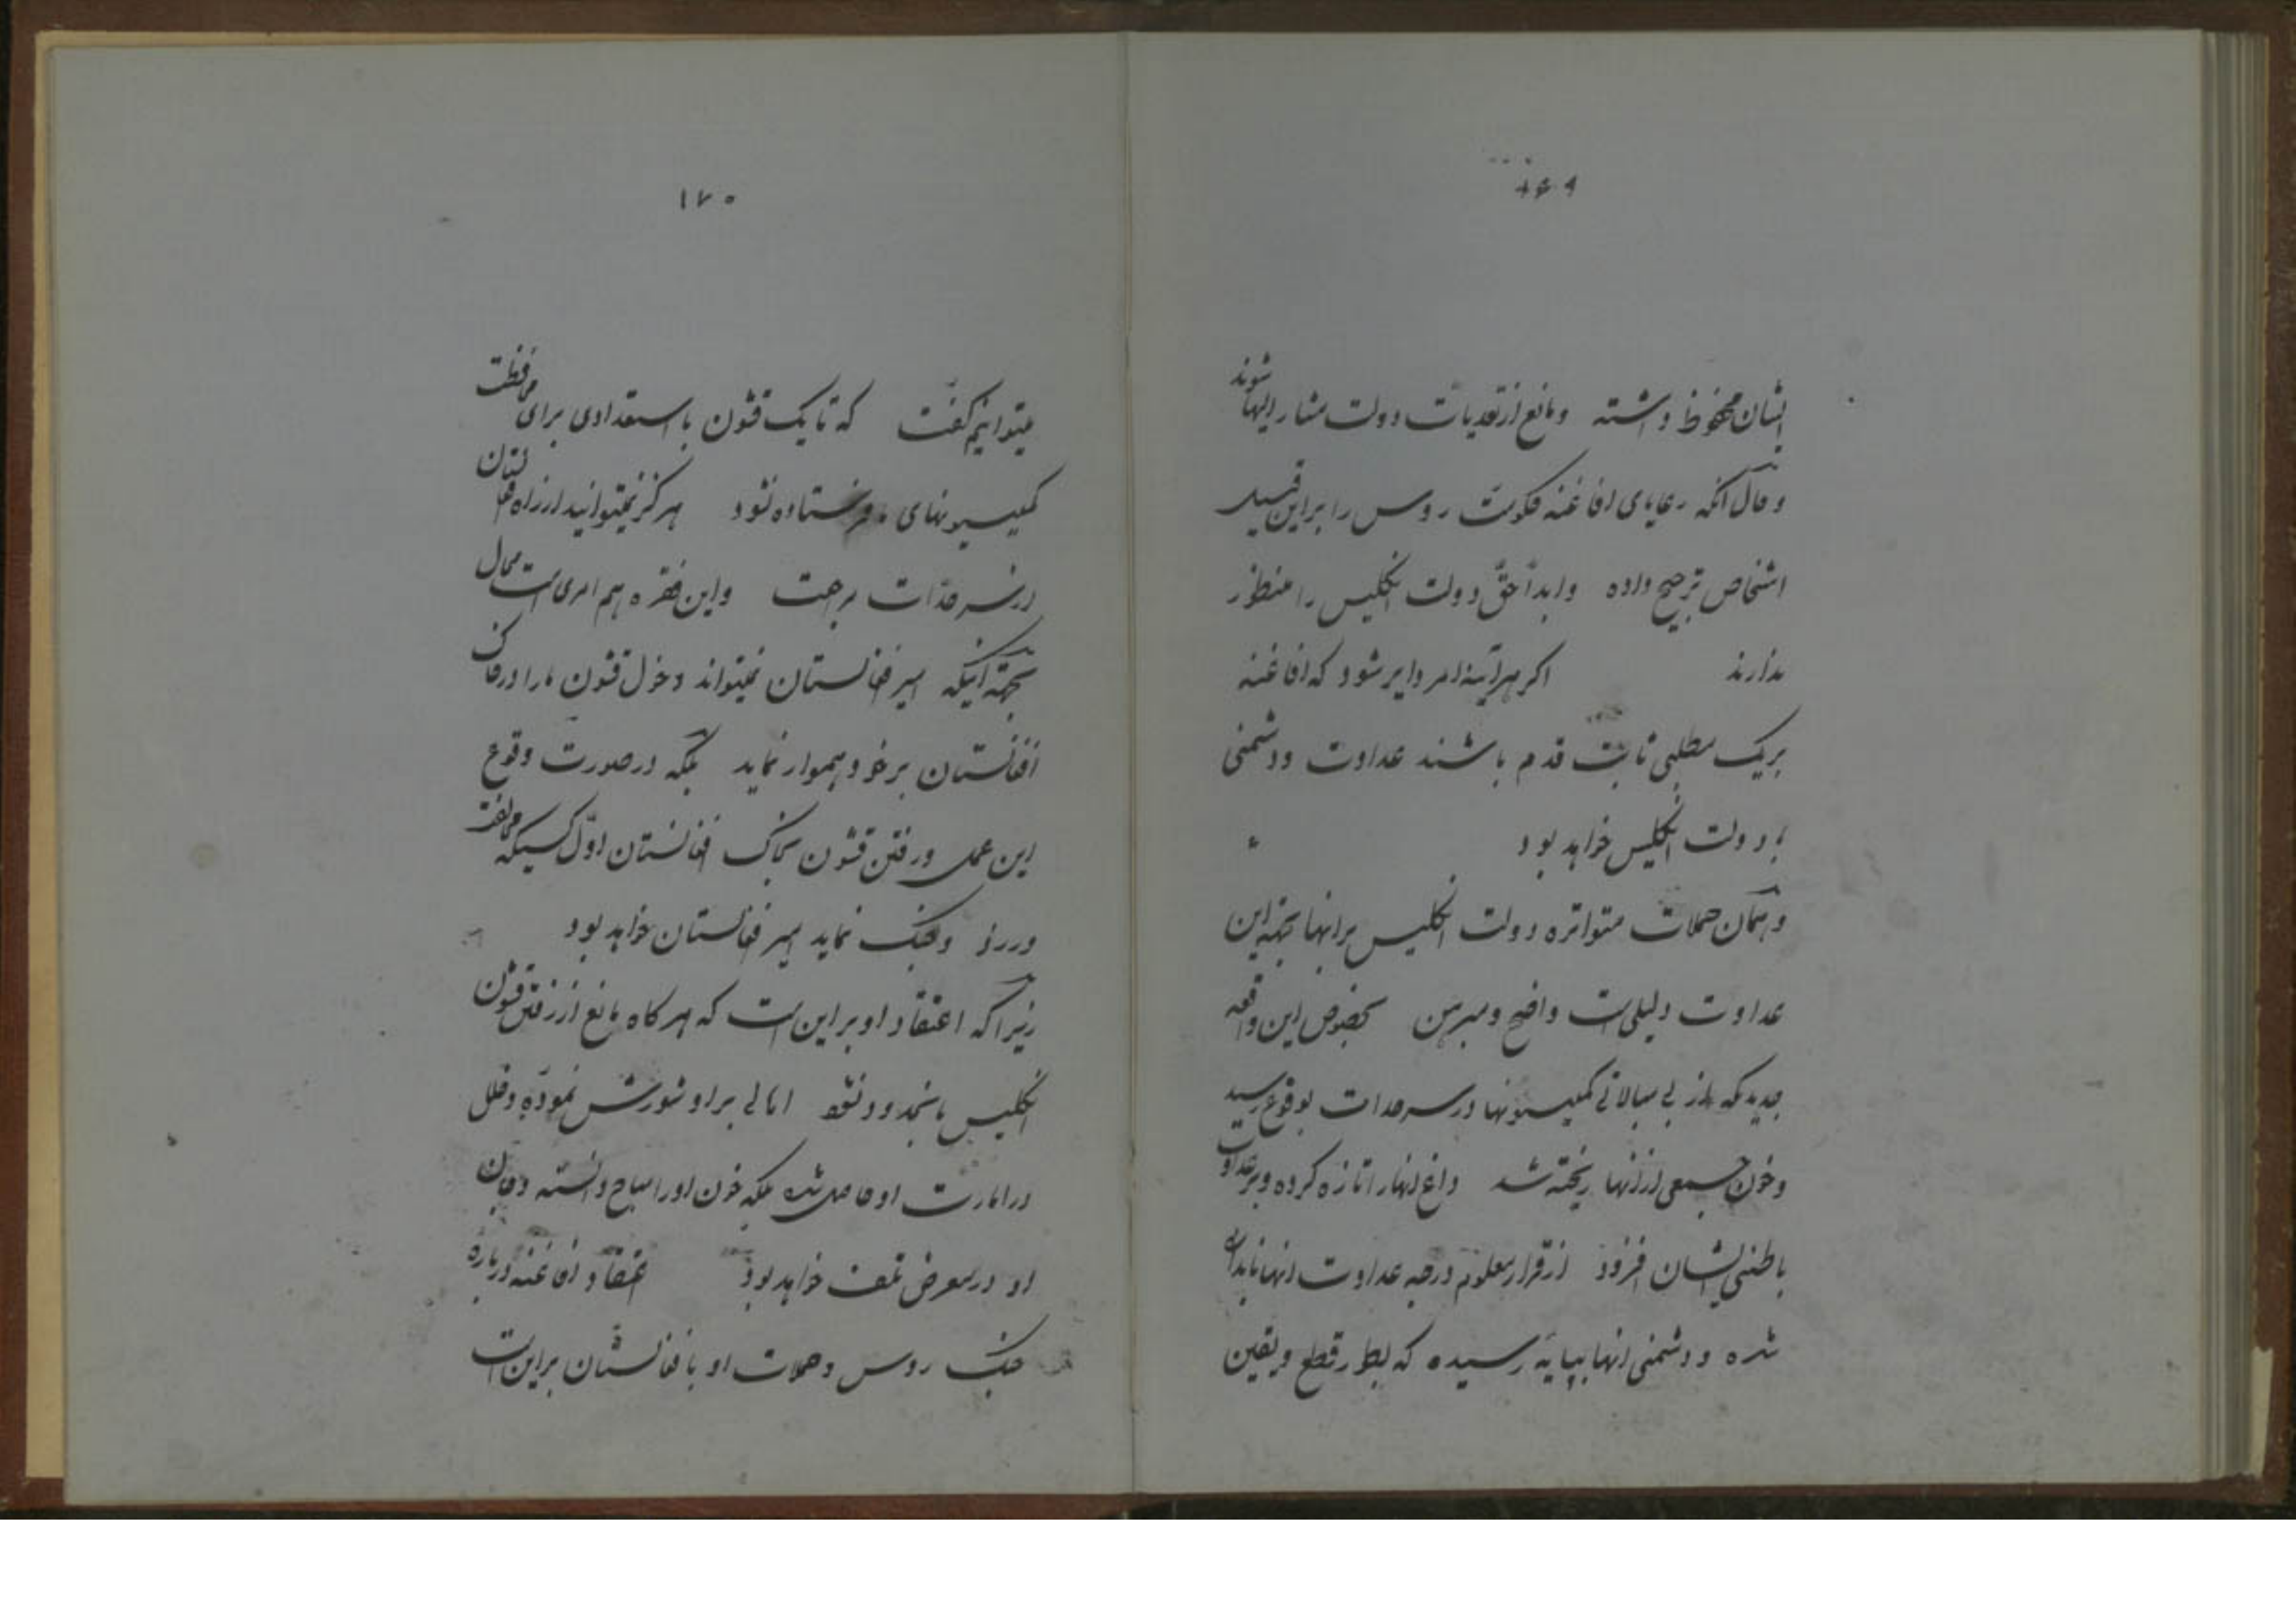 ۱۶۹
ایشان محفوظ داشته ومانع از تعدیات دولت مشار الیها شوند
وحال آنکه رعایای افاغنه حکومت روس را براین قبیل
اشخاص ترجیح داده وابداً حقّ دولت انگلیس را منظور
ندارند اگر هرآینه امر دایر شود که افاغنه
بریک مطلبی ثابت قدم باشند عداوت ودشمنی
با دولت انگلیس خواهد بود
وهمان حملات متواتره دولت انگلیس برانها بجهة این
عداوت دلیلی است واضح ومبرهن بخصوص این واقعه
جدید که از بی مبالاتی کمیسیونها در سرحدات بوقوع رسید
وخون جمعی از انها ریخته شد داغ انها را تازه کرده وبر عداوت
باطنی ایشان افزود از قرار معلوم درجه عداوت انها
شده ودشمنی انها بپایه رسیده که بطور قطع ویقین
۱۷۰
میتوانیم گفت که تا یک قشون با استعدادی برای محافظت
کمیسیونهای ما فرستاده نشود هرگز نمیتوانید از راه افغانستان
از سرحدات مراجعت واین فقره هم امری است محال
بجهة آنیکه امیر افغانستان نمیتواند دخول قشون ما را در خاک
افغانستان برخود هموار نماید بلکه در صورت وقوع
این عمل ورفتن قشون بخاک افغانستان اوّل کسیکه مخالفت
ورزد وجنگ نماید امیر افغانستان خواهد بود
زیرا که اعتقاد او براین است که هرگاه مانع از رفتن قشون
انگلیس بانجدود نشود اهالی براو شورش نموده وخلل
در امارت او حاصل شده بلکه خون اورا مباح دانسته وجان
او در معرض تلف خواهد بود اعتقاد افاغنه درباره
جنگ روس وحملات او بافغانستان براین است